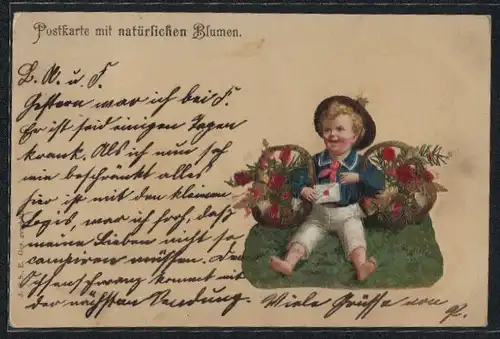 Postkarte mit natürlichen Blumen.
L. A. u. F.
Gestern war ich bei F.
Er ist seid einigen Tagen
krank. Als ich nun sah
wie beschränkt alles
hier ist mit den kleinen
Logis, war ich froh, daß
meine Lieben nicht so
campiren müssen. Der
Ochsenschwanz kommt mit
der nächsten Sendung. Viele Grüsse von